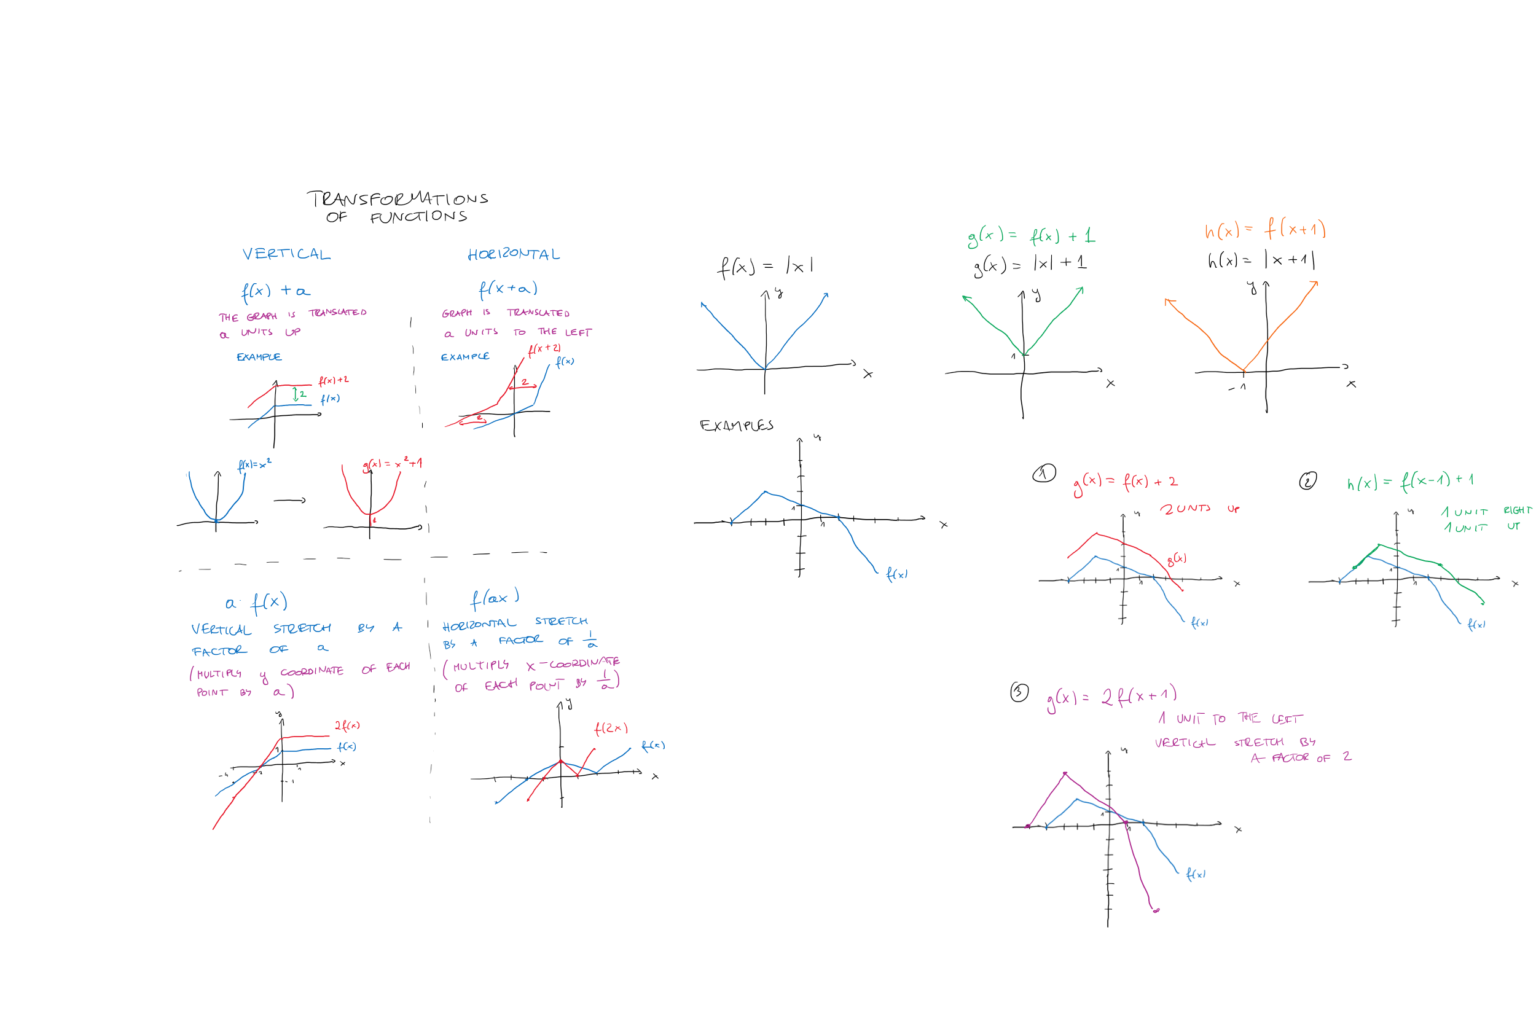 TRANSFORMATIONS
OF FUNCTIONS
VERTICAL
f(x) + a
THE GRAPH IS TRANSLATED
a UNITS UP
EXAMPLE
f(x)+2
2
f(x)
f(x)=x²
g(x)=x²+1
1
HORIZONTAL
f(x+a)
GRAPH IS TRANSLATED
a UNITS TO THE LEFT
EXAMPLE
f(x+2)
f(x)
2
2
a·f(x)
VERTICAL STRETCH BY A
FACTOR OF a
(MULTIPLY y COORDINATE OF EACH
POINT BY a)
y
2f(x)
f(x)
x
1
-4
-2
1
-1
f(ax)
HORIZONTAL STRETCH
BY A FACTOR OF 1/a
(MULTIPLY X-COORDINATE
OF EACH POINT BY 1/a)
y
f(2x)
f(x)
x
f(x) = |x|
y
x
g(x) = f(x) + 1
g(x) = |x| + 1
y
1
x
h(x) = f(x+1)
h(x) = |x+1|
y
-1
x
EXAMPLES
y
1
1
x
f(x)
① g(x) = f(x) + 2
2 UNTS UP
y
g(x)
1
1
x
f(x)
② h(x) = f(x-1) + 1
1 UNIT RIGHT
1 UNIT UP
y
1
1
x
f(x)
③ g(x) = 2f(x+1)
1 UNIT TO THE LEFT
VERTICAL STRETCH BY
A FACTOR OF 2
y
1
1
x
f(x)